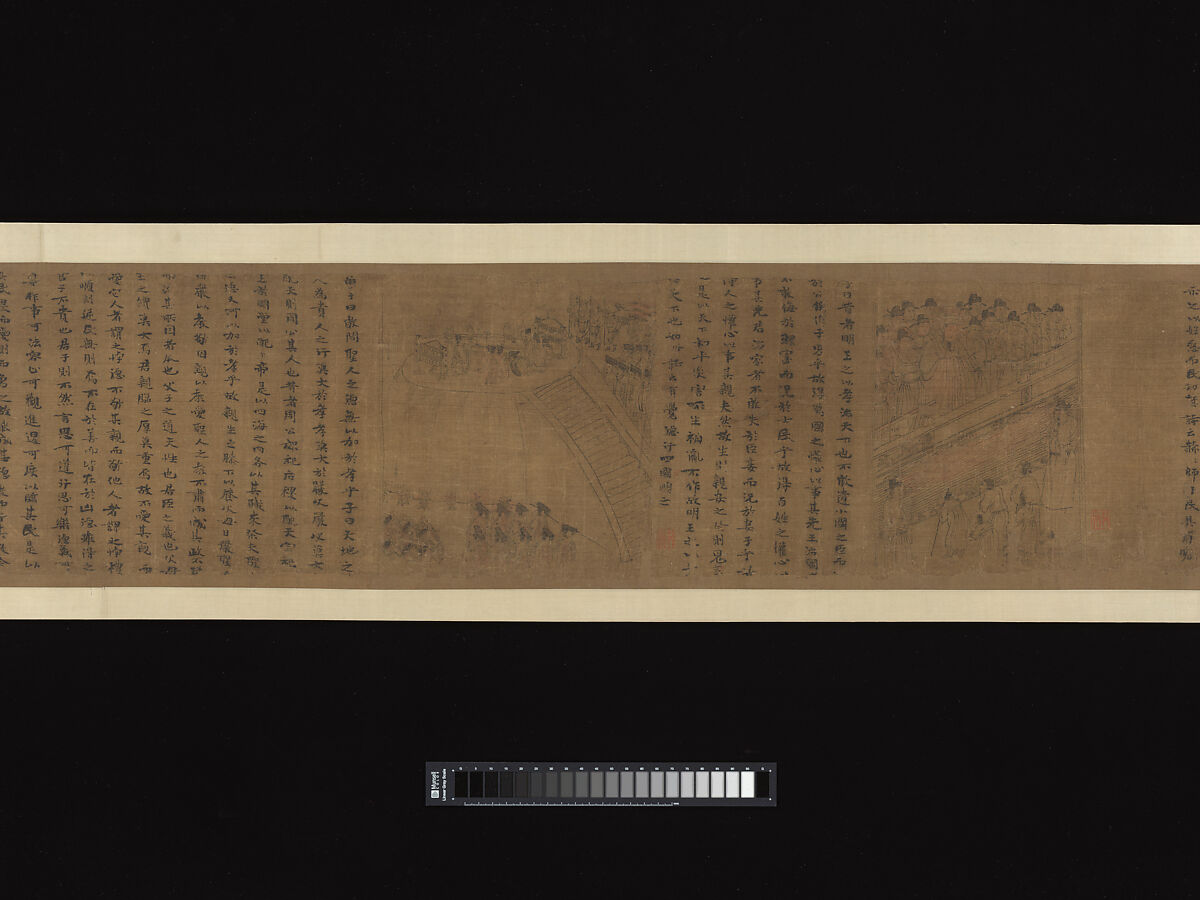 示之以好惡而民知禁詩云赫赫師尹民具爾瞻
子曰昔者明王之以孝治天下也不敢遺小國之臣而
於公侯伯子男乎故得萬國之懽心以事其先王治國
不敢侮於鰥寡而況於士民乎故得百姓之懽心以
事其先君治家者不敢失於臣妾而況於妻子乎故
得人之懽心以事其親夫然故生則親安之祭則鬼
之是以天下和平災害不生禍亂不作故明王之以
治天下也如此詩云有覺德行四國順之
曾子曰敢問聖人之德無以加於孝乎子曰天地之
人為貴人之行莫大於孝孝莫大於嚴父嚴父莫大
配天則周公其人也昔者周公郊祀后稷以配天宗祀
王於明堂以配上帝是以四海之內各以其職來祭夫聖
之德又何以加於孝乎故親生之膝下以養父母日嚴聖人
因嚴以教敬因親以教愛聖人之教不肅而成其政不嚴
而治其所因者本也父子之道天性也君臣之義也父母
生之續莫大焉君親臨之厚莫重焉故不愛其親而
愛他人者謂之悖德不敬其親而敬他人者謂之悖禮
以順則逆民無則焉不在於善而皆在於凶德雖得之
君子不貴也君子則不然言思可道行思可樂德義可
尊作事可法容止可觀進退可度以臨其民是以
其民畏而愛之則而象之故能成其德教而行其政令
Munsell
COLOR
Linear Gray Scale